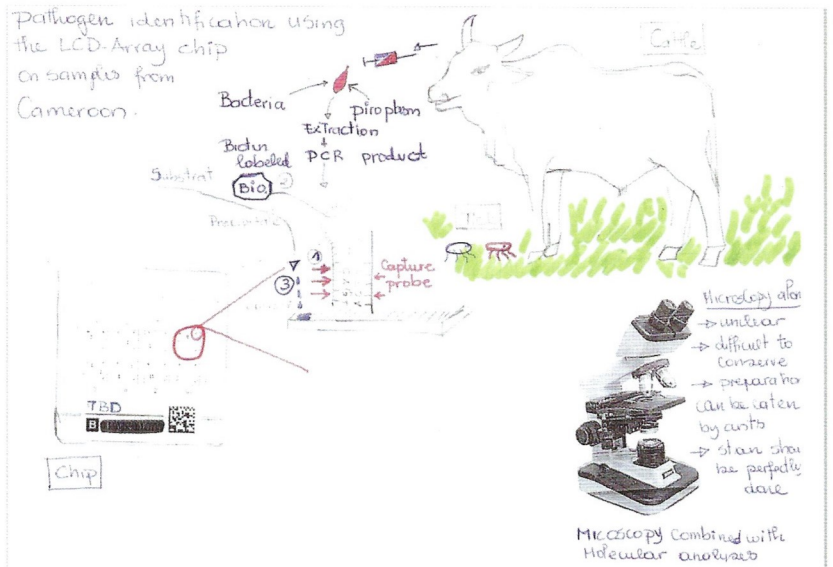 Pathogen identification using
the LCD-Array chip
on samples from
Cameroon.
Cattle
Bacteria
piroplasm
Extraction
PCR product
Biotin
labeled
Bio
2
Substrat
Precipitate
Tick
1
3
Capture
probe
TBD
B
Chip
Microscopy alone
→ unclear
→ difficult to
conserve
→ preparation
can be eaten
by ants
→ stain shou
be perfectly
done
Micoscopy combined with
Molecular analyses